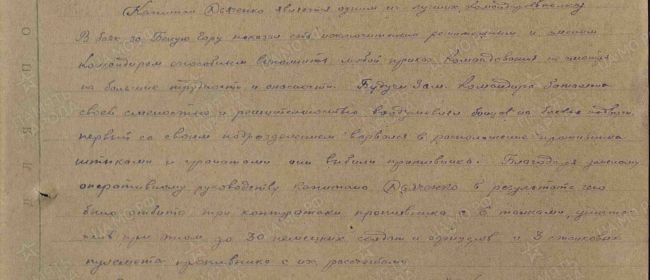 Капитан Дьяченко является одним из лучших командиров
В боях за Белую Гору показал себя исключительно решительным и смелым
командиром способным выполнить любой приказ командования не смотря
на большие трудности и опасности. Будучи Зам. командира батальона
своей смелостью и решительностью воодушевлял бойцов на боевые подвиги,
первый со своим подразделением ворвался в расположение противника
штыками и гранатами они выбили противника. Благодаря умелому
оперативному руководству капитана Дьяченко в результате чего
было отбито три контратаки противника с 6 танками,
при этом до 30 немецких солдат и офицеров и 3 станковых
пулемета противника с их расчетами.